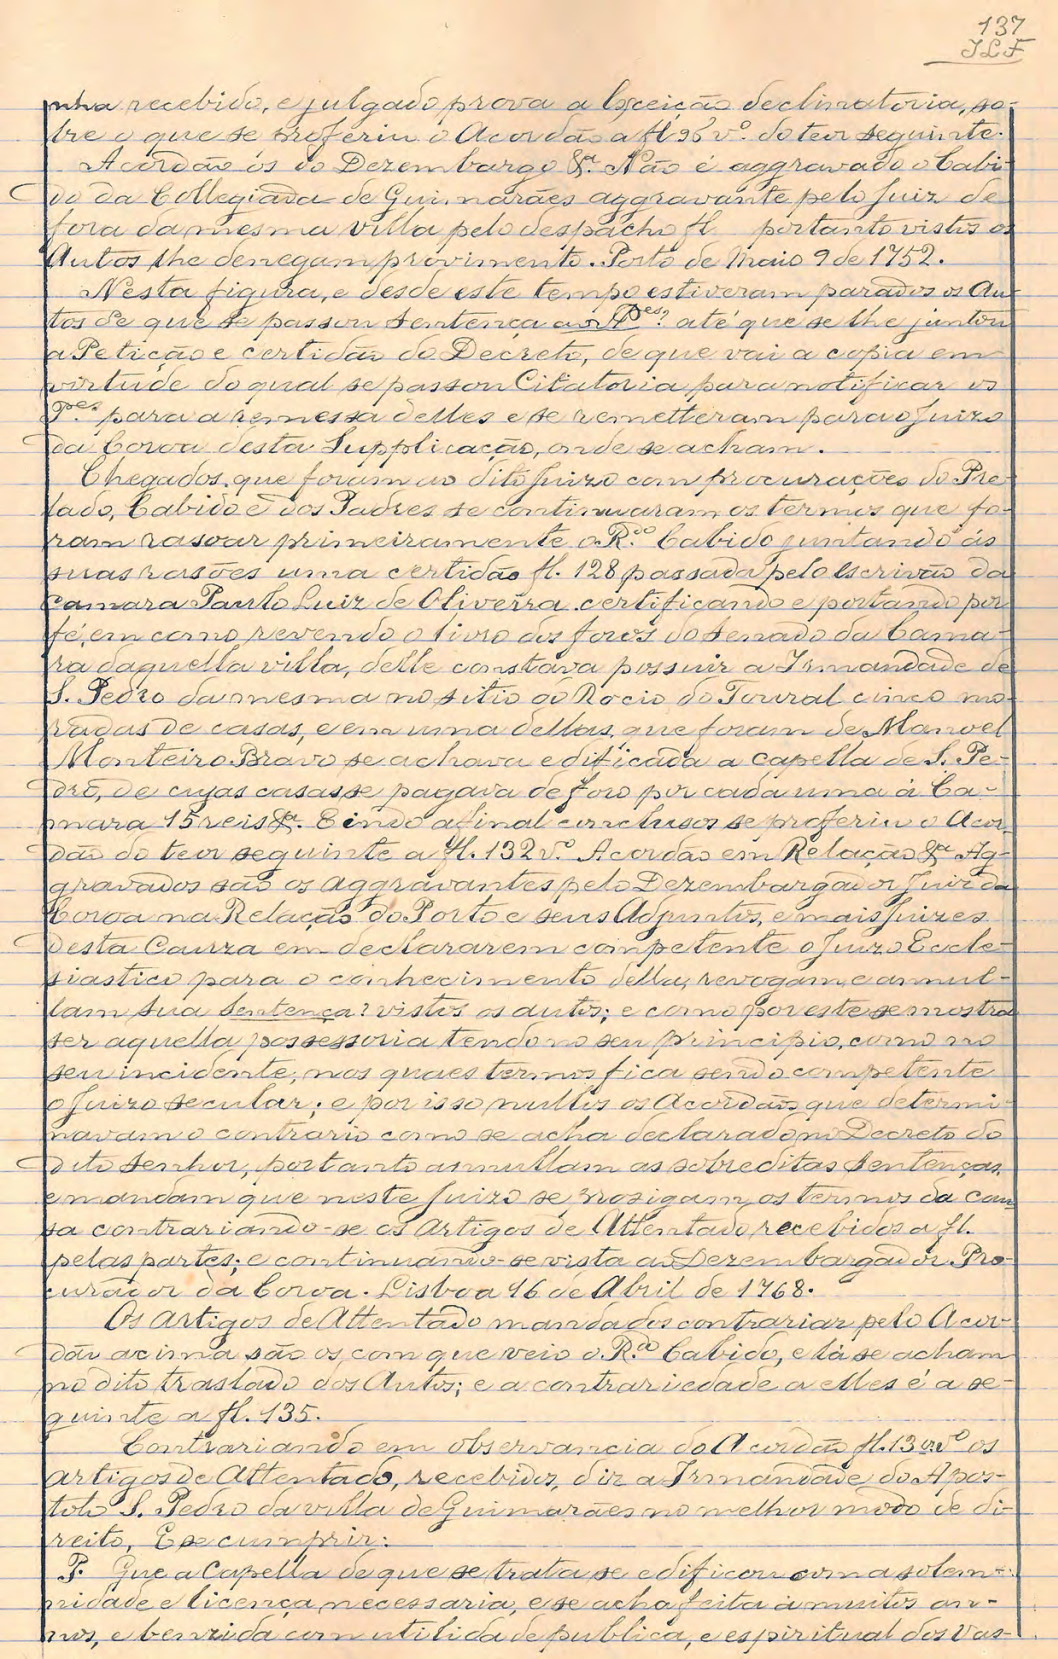 137
JLF
nha recebido, e julgado prova a Exceição declinatoria, so-
bre o que se proferiu o Acordão a fl 96 vº. do teor seguinte.
Acordão ós do Dezembargo &ª. Não é aggravado o Cabi-
do da Collegiada de Guimarães aggravante pelo Juiz de
fora da mesma villa pelo despacho fl portanto vistos os
Autos lhe denegam provimento. Porto de Maio 9 de 1752.
Nesta figura, e desde este tempo estiveram parados os Au-
tos de que se passou sentença aos Pes? até que se lhe juntou
a Petição e certidão do Decreto, de que vai a copia em
virtude do qual se passou Citatoria para notificar os
Pes para a remessa delles e se remetteram para o Juizo
da Coroa desta Supplicação, onde se acham.
Chegados que foram ao dito Juizo com procurações do Pre-
lado, Cabido e dos Padres se continuaram os termos que fo-
ram rasoar primeiramente o R.do Cabido juntando ás
suas rasões uma certidão fl. 128 passada pelo Escrivão da
Camara Paulo Luiz de Oliveira certificando e portando por
fé, em como revendo o livro dos foros do Senado da Cama-
ra daquella villa, delle constava possuir a Irmandade de
S. Pedro da mesma no sitio do Rocio do Toural cinco mo-
radas de casas, e em uma dellas, que foram de Manoel
Monteiro Bravo se achava edificada a capella de S. Pe-
dro, de cujas casas se pagava de foro por cada uma á Ca-
mara 15 reis &ª. E indo afinal conclusos se proferiu o Acor-
dão do teor seguinte a fl. 132 vº. Acordão em Relação &ª Ag-
gravados são os aggravantes pelo Dezembargador Juiz da
Coroa na Relação do Porto e seus Adjuntos, e mais Juizes
desta Cauza em declararem competente o Juizo Eccle-
siastico para o conhecimento della, revogam, e annul-
lam sua sentença? vistos os autos; e como por estes se mostra
ser aquella possessoria tendo no seu principio, como no
seu incidente; nos quaes termos fica sendo competente
o Juizo secular; e por isso nullos os Acordãos que determi-
navam o contrario como se acha declarado no Decreto do
dito Senhor, portanto annullam as sobreditas sentenças,
e mandam que neste Juizo se prosigam os termos da cau-
sa contrariando-se os artigos de Attentado recebidos a fl.
pelas partes; e continuando-se vista ao Dezembargador Pro-
curador da Coroa. Lisboa 16 de Abril de 1768.
Os artigos de Attentado mandados contrariar pelo Acor-
dão acima são os com que veio o R.do Cabido, e lá se acham
no dito traslado dos Autos; e a contrariedade a elles é a se-
guinte a fl. 135.
Contrariando em observancia do Acordão fl. 130 vº os
artigos de Attentado, recebidos, diz a Irmandade do Apos-
tolo S. Pedro da villa de Guimarães no melhor modo de di-
reito, E se cumprir:
P. Que a Capella de que se trata se edificou com a solem-
nidade e licença necessaria, e se acha feita a muitos an-
nos, e benzida com utilidade publica, e espiritual dos Vas-